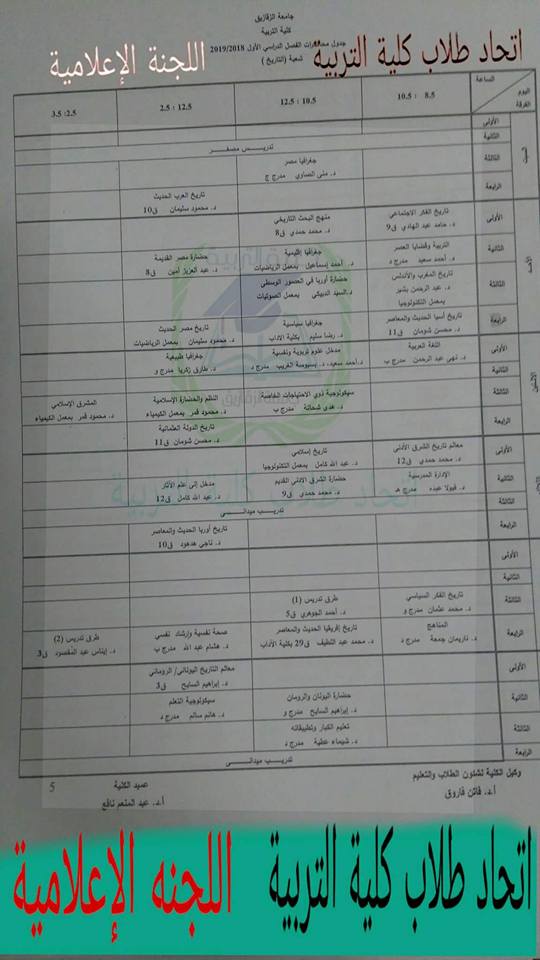 جامعة الزقازيق
كلية التربية
جدول محاضرات الفصل الدراسي الأول 2019/2018
شعبة (التاريخ)
اتحاد طلاب كلية التربية اللجنة الإعلامية
الساعة
اليوم
الفرقة
8.5 : 10.5
10.5 : 12.5
12.5 : 2.5
2.5: 3.5
الأولى
الثانية
تدريس مصغر
الثالثة
جغرافيا مصر
د. منى الصاوي مدرج ج
الرابعة
تاريخ العرب الحديث
د. محمود سليمان ق10
الأولى
تاريخ الفكر الاجتماعي
د. حامد عبد الهادي ق9
منهج البحث التاريخي
د. محمد حمدي ق8
الثانية
التربية وقضايا العصر
د. أحمد سعيد مدرج د
جغرافيا إقليمية
د. أحمد إسماعيل بمعمل الرياضيات
حضارة مصر القديمة
د. عبد العزيز أمين ق8
الثالثة
تاريخ المغرب والأندلس
د. عبد الرحمن بشير
بمعمل التكنولوجيا
حضارة أوربا في العصور الوسطى
د.السيد الدبيكي بمعمل الصوتيات
الرابعة
تاريخ آسيا الحديث والمعاصر
د. محسن شومان ق11
جغرافيا سياسية
د. رضا سليم بكلية الآداب
تاريخ مصر الحديث
د. محمود سليمان بمعمل الرياضيات
الأولى
اللغة العربية
د. نهى عبد الرحمن مدرج ب
مدخل علوم تربوية ونفسية
د. أحمد سعيد، د. بسيوسة الغريب مدرج د
جغرافيا طبيعية
د. طارق زكريا مدرج و
الثانية
الثالثة
سيكولوجية ذوي الاحتياجات الخاصة
د. هدى شحاتة مدرج ب
النظم والحضارة الإسلامية
د. محمود قمر بمعمل الكيمياء
المشرق الإسلامي
د. محمود قمر بمعمل الكيمياء
الرابعة
تاريخ الدولة العثمانية
د. محسن شومان ق11
الأولى
معالم تاريخ الشرق الأدنى
د. محمد حمدي ق12
تاريخ إسلامي
د. عبد الله كامل بمعمل التكنولوجيا
الثانية
الإدارة المدرسية
د. فيولا عبده مدرج هـ
حضارة الشرق الأدنى القديم
د. محمد حمدي ق9
مدخل إلى علم الآثار
د. عبد الله كامل ق12
الثالثة
تدريب ميداني
الرابعة
تاريخ أوربا الحديث والمعاصر
د. ناجي هدهود ق10
الأولى
الثانية
الثالثة
تاريخ الفكر السياسي
د. محمد عثمان مدرج و
طرق تدريس (1)
د. أحمد الجوهري ق5
الرابعة
المناهج
د. ناريمان جمعة مدرج د
تاريخ إفريقيا الحديث والمعاصر
د. محمد عبد اللطيف ق29 بكلية الآداب
صحة نفسية وإرشاد نفسي
د. هشام عبد الله مدرج ب
طرق تدريس (2)
د. إيناس عبد المقصود ق3
الأولى
معالم التاريخ اليوناني/ الروماني
د. إبراهيم السايح ق3
الثانية
حضارة اليونان والرومان
د. إبراهيم السايح مدرج و
سيكولوجية التعلم
د. هانم سالم مدرج د
الثالثة
تعليم الكبار وتطبيقاته
د. شيماء عطية مدرج د
الرابعة
تدريب ميداني
وكيل الكلية لشئون الطلاب والتعليم
أ.د. فاتن فاروق
عميد الكلية
أ.د. عبد المنعم نافع
5
اتحاد طلاب كلية التربية اللجنه الإعلامية